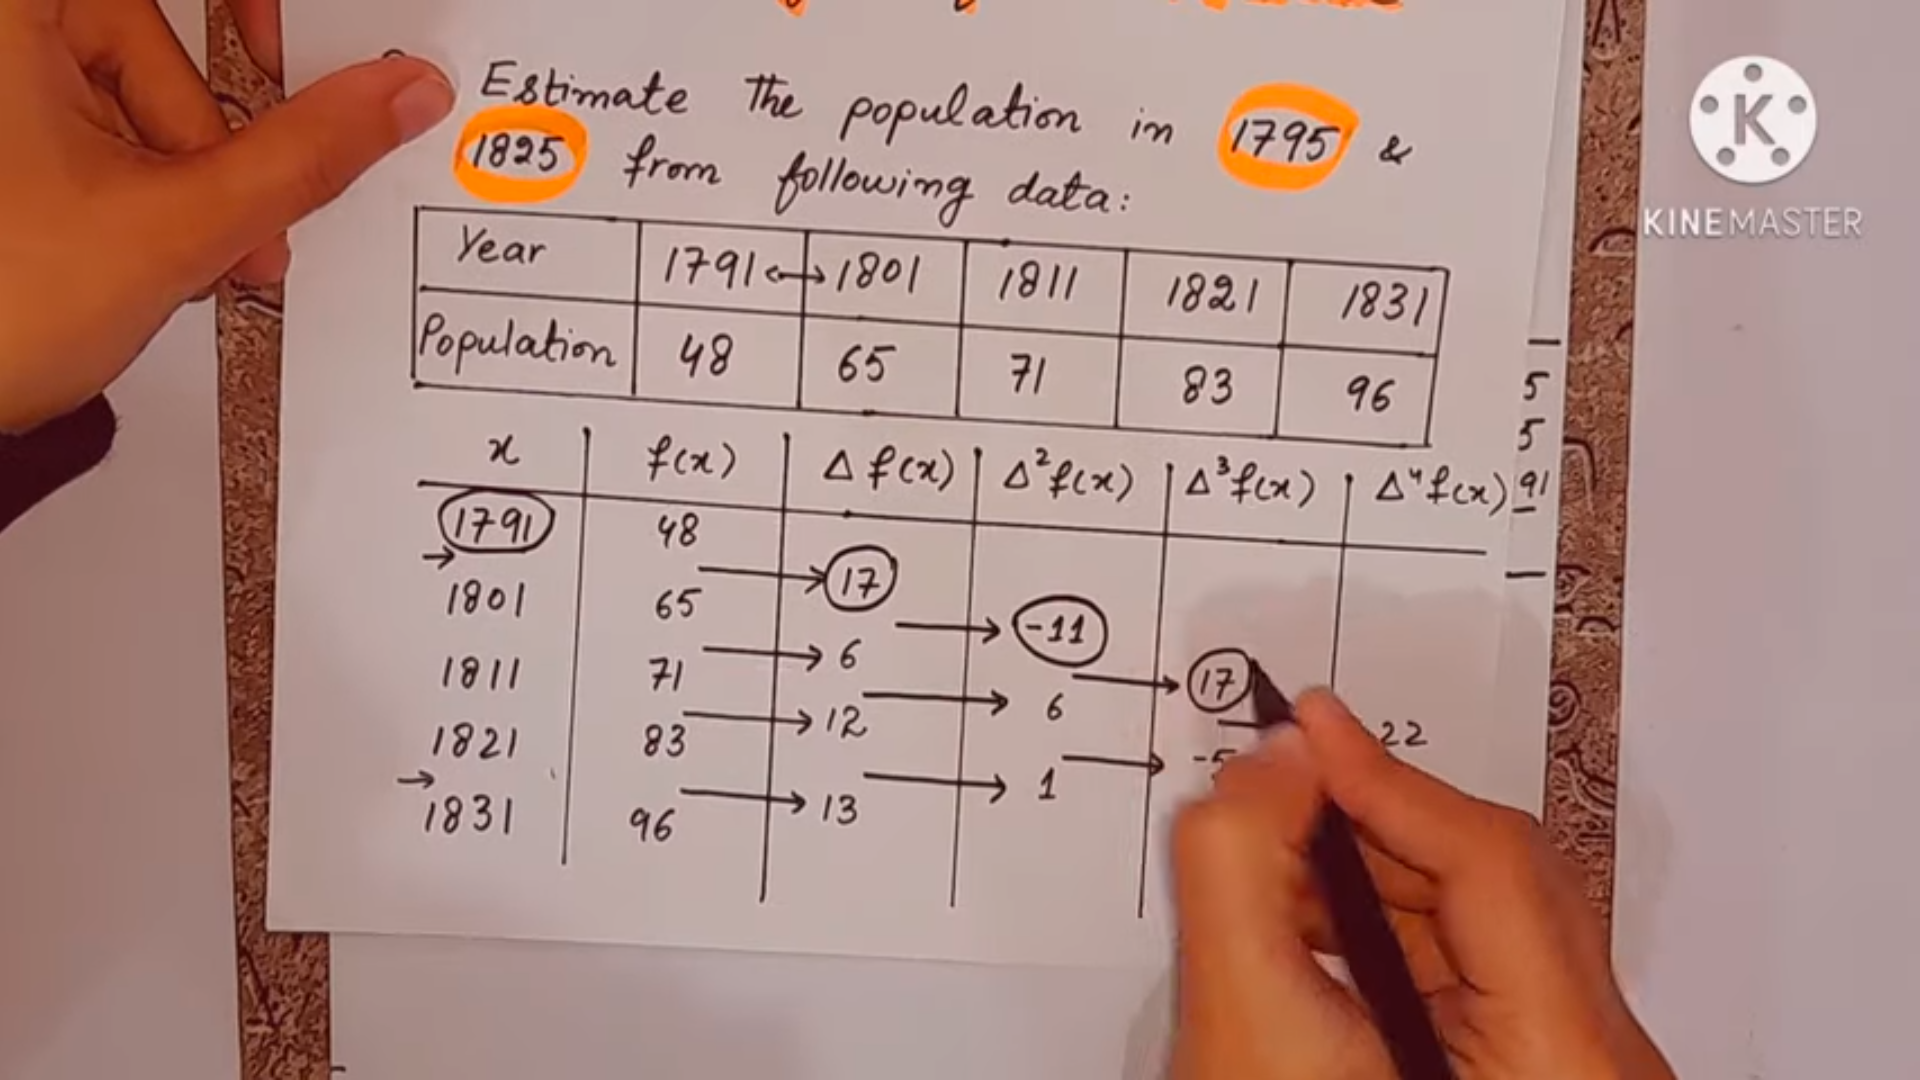 Estimate the population in 1795 &
1825 from following data:
Year 1791 ↔ 1801 1811 1821 1831
Population 48 65 71 83 96
x f(x) Δf(x) Δ²f(x) Δ³f(x) Δ⁴f(x)
1791 48
→ 17
1801 65 → -11
→ 6 → 17
1811 71 → 6 22
→ 12 →
1821 83 → 1
→ 13
1831 96
5
5
91
K
KINEMASTER